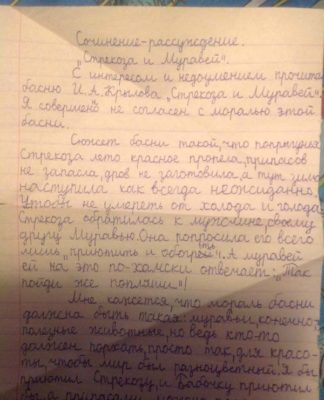 Сочинение-рассуждение.
"Стрекоза и Муравей".
С интересом и недоумением прочитал
басню И.А.Крылова „Стрекоза и Муравей".
Я совершено не согласен с моралью этой
басни.
Сюжет басни такой, что попрыгунья
Стрекоза лето красное пропела, припасов
не запасла, дров не заготовила, а тут зима
наступила как всегда неожиданно.
Чтобы не умереть от холода и голода
Стрекоза обратилась к мужчине, своему
другу Муравью. Она попросила его всего
лишь „приютить и обогреть". А муравей
ей на это по-хамски отвечает: „Так
пойди же попляши"!
Мне кажется, что мораль басни
должна быть такая: муравьи, конечно
полезные животные, но ведь кто-то
должен порхать, просто так, для красо-
ты, чтобы мир был разноцветный. Я бы
приютил Стрекозу, и бабочку приютил